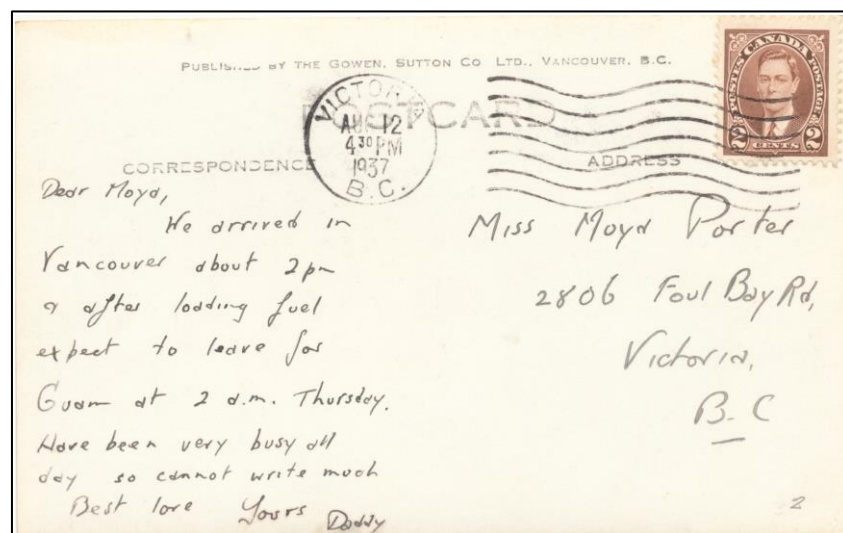 PUBLISHED BY THE GOWEN, SUTTON CO LTD., VANCOUVER, B.C.
POSTES CANADA POSTAGE
2 CENTS 2
POSTCARD
VICTORIA
AUG 12
4 30 PM
1937
B.C.
CORRESPONDENCE
ADDRESS
Dear Moya,
We arrived in
Vancouver about 2pm
& after loading fuel
expect to leave for
Guam at 2 a.m. Thursday.
Have been very busy all
day so cannot write much
Best love Yours Daddy
Miss Moya Porter
2806 Foul Bay Rd,
Victoria,
B.C
2